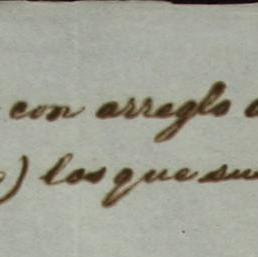 con arreglo
) los que su